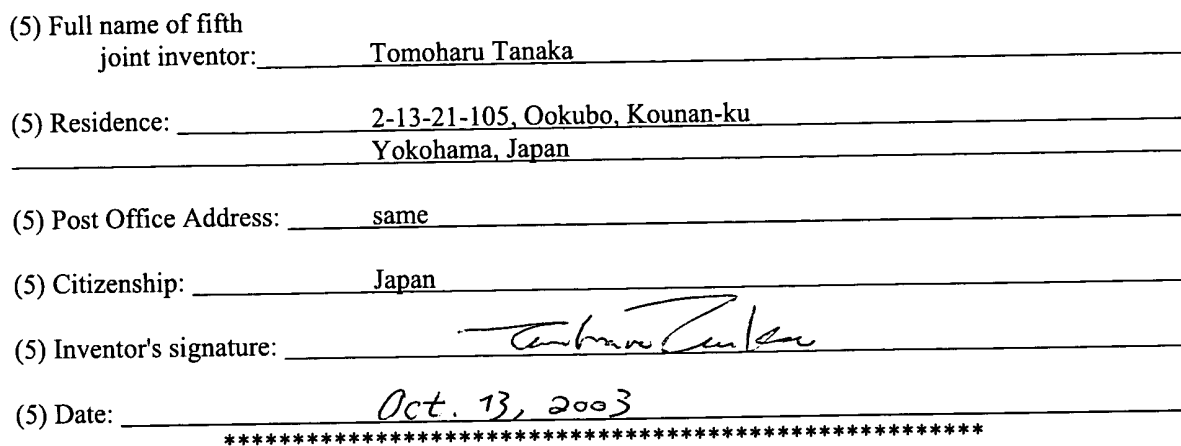 (5) Full name of fifth
joint inventor: Tomoharu Tanaka
(5) Residence: 2-13-21-105, Ookubo, Kounan-ku
Yokohama, Japan
(5) Post Office Address: same
(5) Citizenship: Japan
(5) Inventor's signature: Tomoharu Tanaka
(5) Date: Oct. 13, 2003
*******************************************************